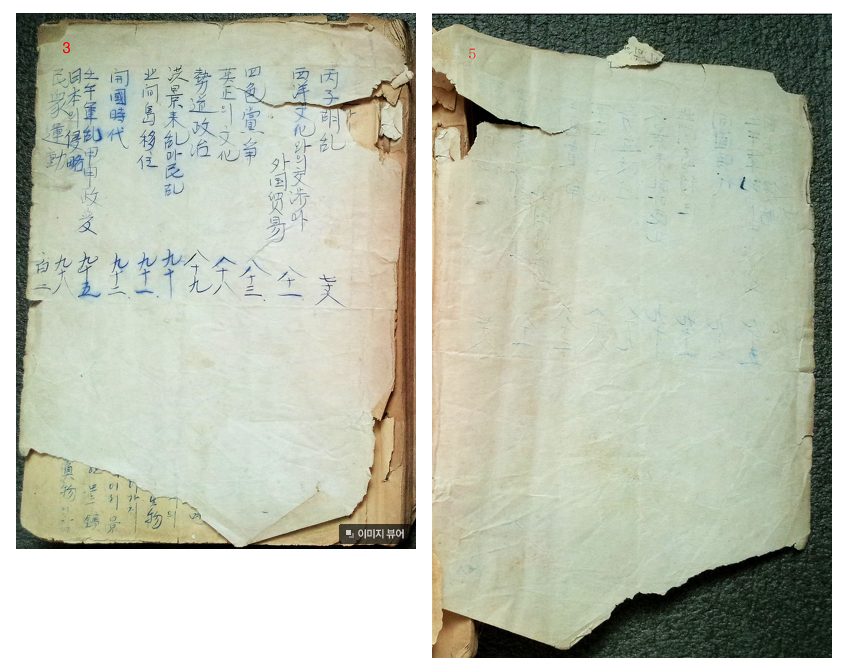 3
丙子胡乱
西洋文化와의交渉과
外国贸易
四色黨争
英正의文化
勢道政治
洪景来乱과民乱
北间島移住
開國時代
壬午軍乱甲申政变
日本의侵略
民衆運動
八十一
八十三
八十八
八十九
九十
九十一
九十二
九十五
九十八
百一
이미지 뷰어
5